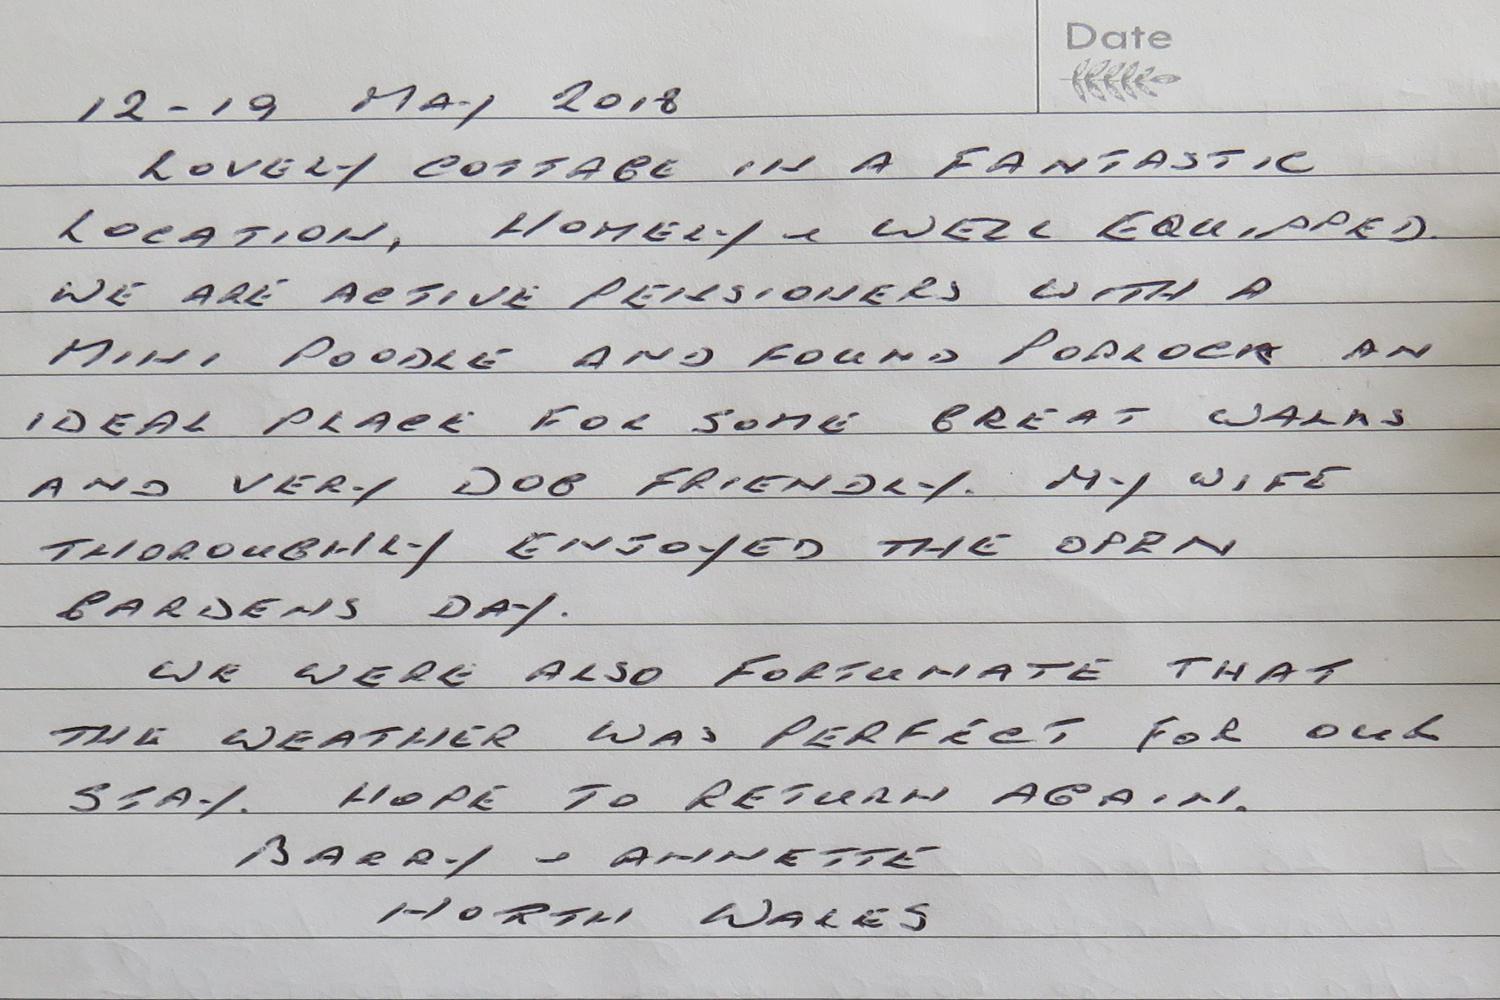 Date
12-19 MAY 2018
LOVELY COTTAGE IN A FANTASTIC
LOCATION, HOMELY & WELL EQUIPPED.
WE ARE ACTIVE PENSIONERS WITH A
MINI POODLE AND FOUND PORLOCK AN
IDEAL PLACE FOR SOME GREAT WALKS
AND VERY DOG FRIENDLY. MY WIFE
THOROUGHLY ENJOYED THE OPEN
GARDENS DAY.
WE WERE ALSO FORTUNATE THAT
THE WEATHER WAS PERFECT FOR OUR
STAY. HOPE TO RETURN AGAIN.
BARRY & ANNETTE
NORTH WALES